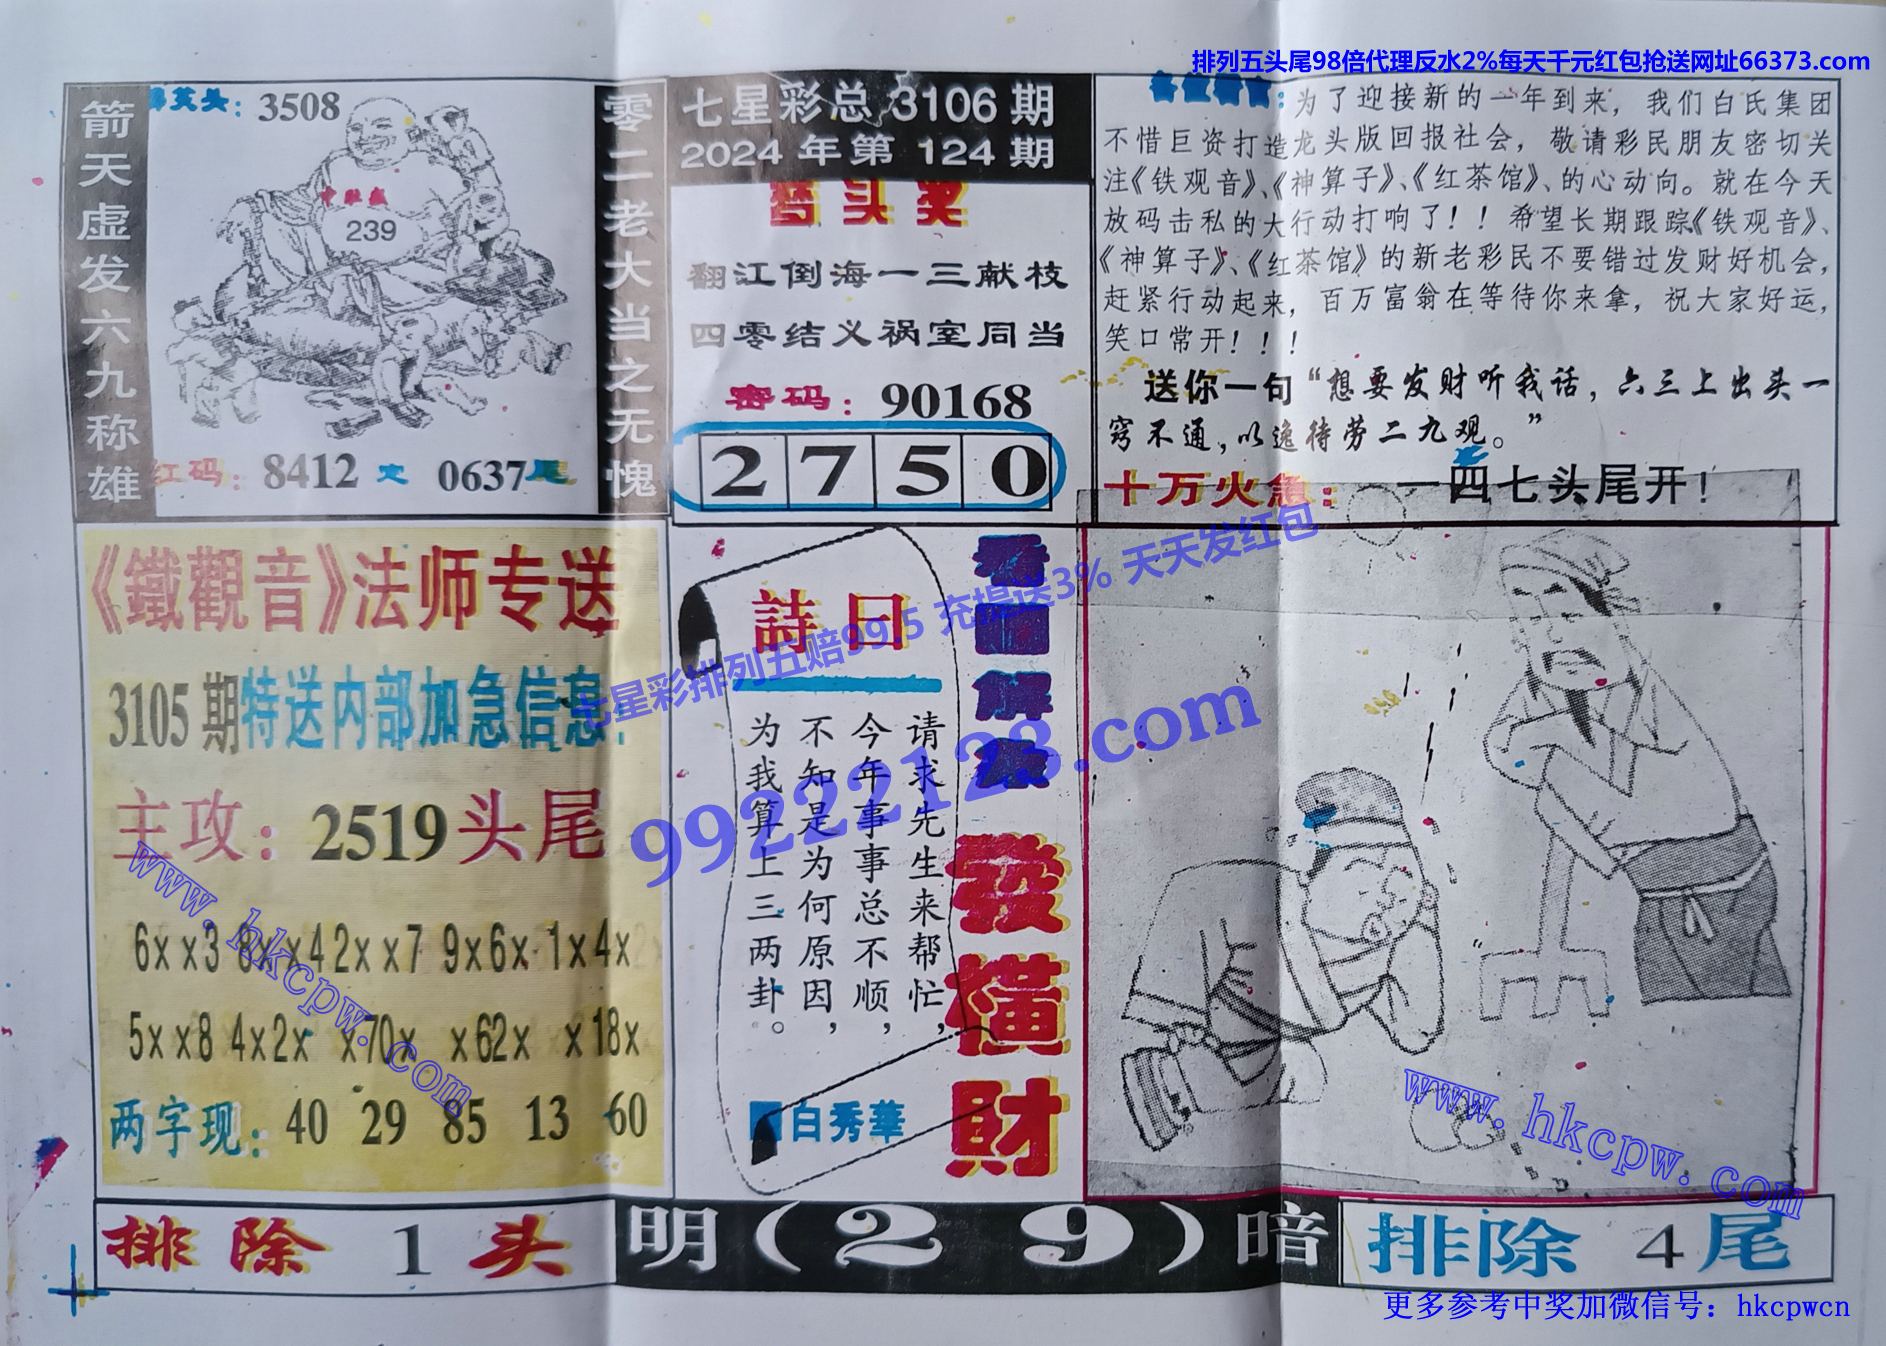 排列五头尾98倍代理反水2%每天千元红包抢送网址66373.com
箭天虚发六九称雄
3508
中肚藏
239
红码：8412 定 0637尾
零二老大当之无愧
七星彩总 3106 期
2024 年第 124 期
翻江倒海一三献枝
四零结义祸室同当
密码：90168
2 7 5 0
为了迎接新的一年到来，我们白氏集团
不惜巨资打造龙头版回报社会，敬请彩民朋友密切关
注《铁观音》、《神算子》、《红茶馆》、的心动向。就在今天
放码击私的大行动打响了！！希望长期跟踪《铁观音》、
《神算子》、《红茶馆》的新老彩民不要错过发财好机会，
赶紧行动起来，百万富翁在等待你来拿，祝大家好运，
笑口常开！！！
送你一句“想要发财听我话，六三上出头一
窍不通，以逸待劳二九观。”
十万火急：一四七头尾开！
《鐵觀音》法师专送
3105 期特送内部加急信息：
主攻：2519头尾
6xx3 8xx4 2xx7 9x6x 1x4x
5xx8 4x2x x70x x62x x18x
两字现：40 29 85 13 60
詩曰
请求先生来帮忙，
今年事事总不顺，
不知是为何原因，
为我算上三两卦。
白秀華
發橫財
七星彩排列五赔99.5 充提送3% 天天发红包
99222123.com
www.hkcpw.com
www.hkcpw.com
排除 1 头
明（29）暗
排除 4 尾
更多参考中奖加微信号：hkcpwcn